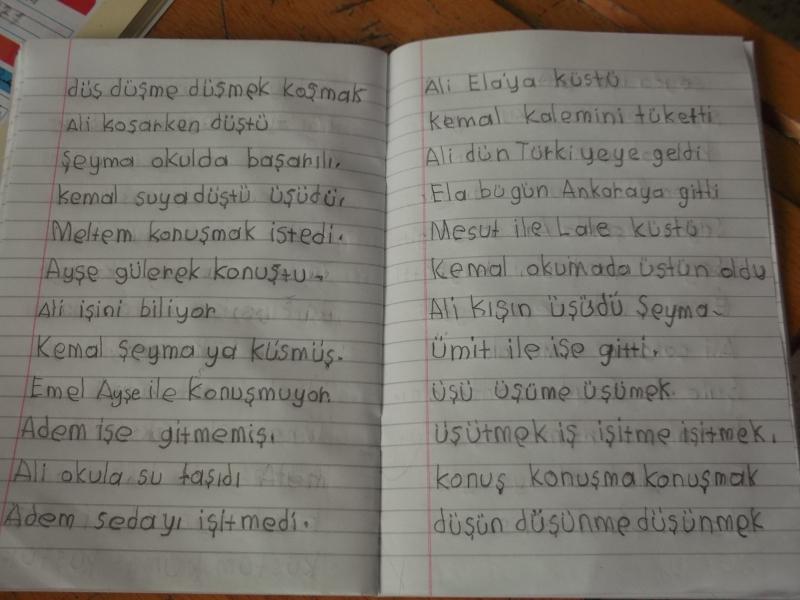 düş düşme düşmek koşmak
Ali koşarken düştü
Şeyma okulda başarılı.
Kemal suya düştü üşüdü.
Meltem konuşmak istedi.
Ayşe gülerek konuştu.
Ali işini biliyor
Kemal Şeyma ya küsmüş.
Emel Ayşe ile konuşmuyor.
Adem işe gitmemiş.
Ali okula su taşıdı
Adem sedayı işitmedi.
Ali Ela'ya küstü
Kemal kalemini tüketti
Ali dün Türkiyeye geldi
Ela bugün Ankaraya gitti
Mesut ile Lale küstü
Kemal okumada üstün oldu
Ali kışın üşüdü Şeyma
Ümit ile işe gitti.
üşü üşüme üşümek
üşütmek iş işitme işitmek.
konuş konuşma konuşmak
düşün düşünme düşünmek